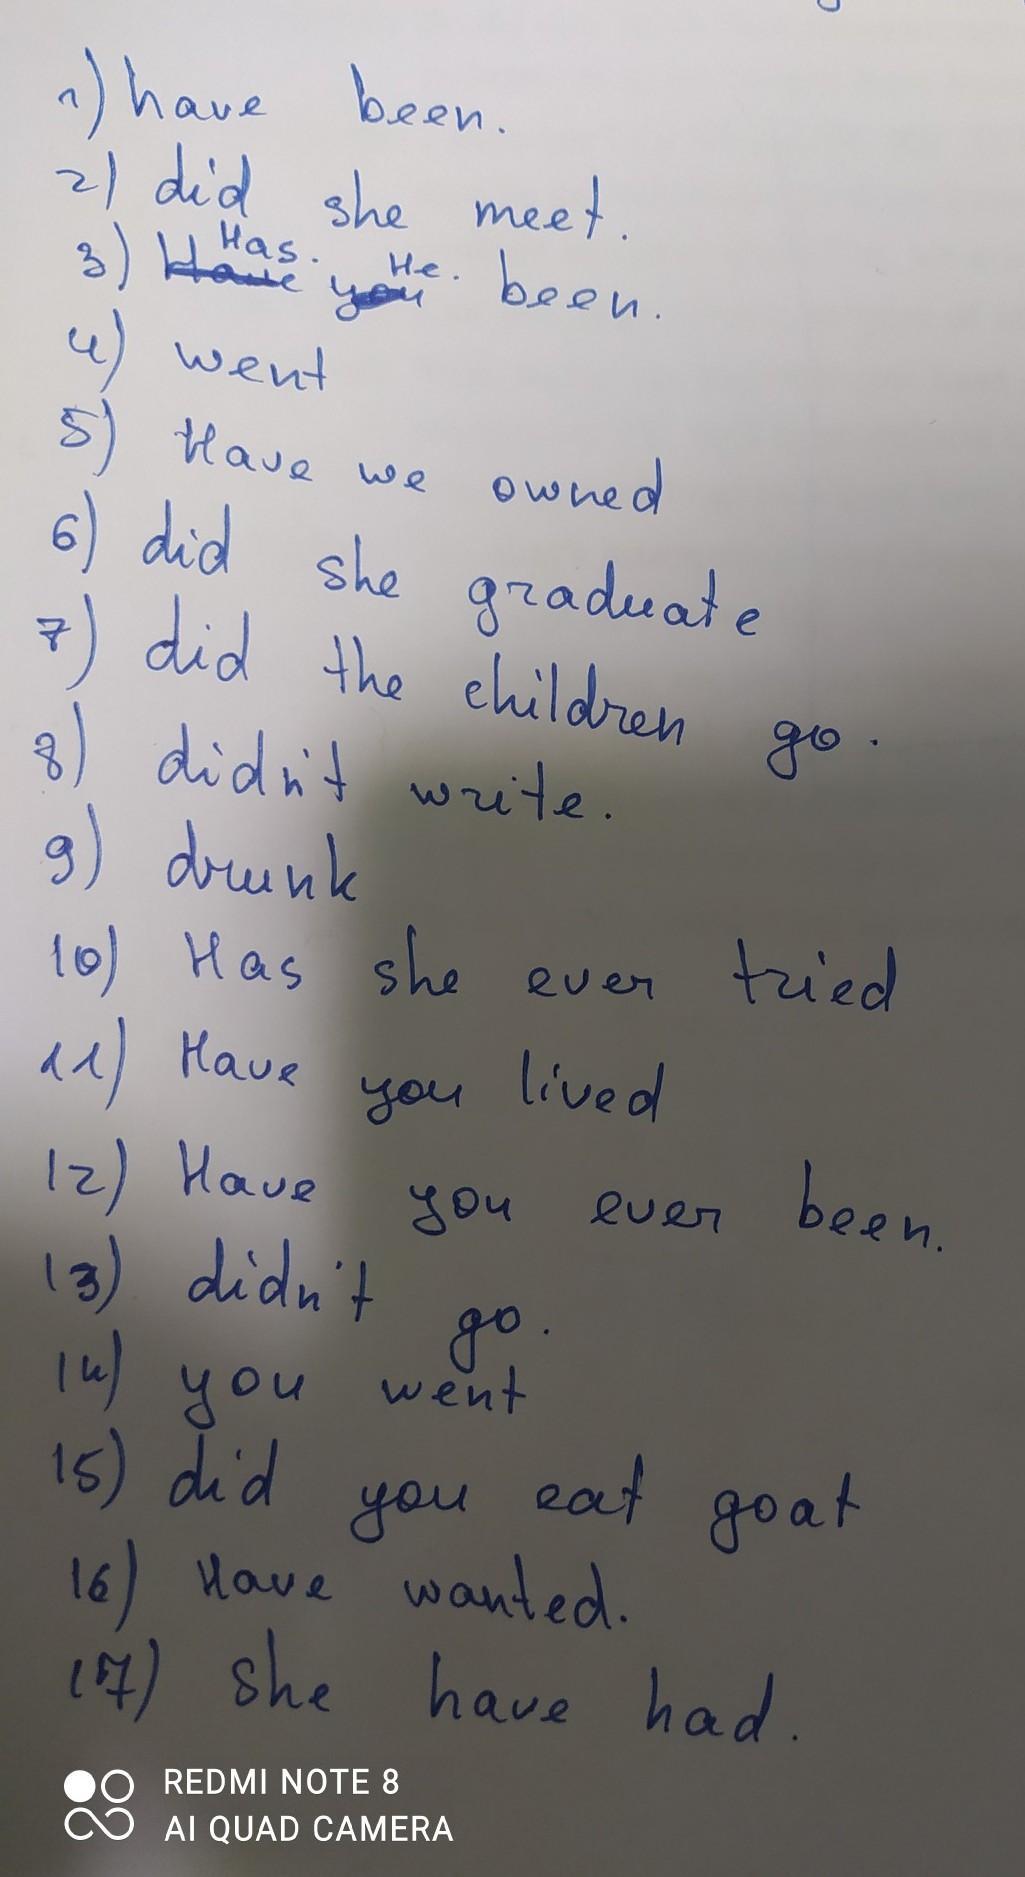 1) have been.
2) did she meet.
3) Has. He. been.
4) went
5) Have we owned
6) did she graduate
7) did the children go.
8) didn't write.
9) drunk
10) Has she ever tried
11) Have you lived
12) Have you ever been.
13) didn't go.
14) you went
15) did you eat goat
16) Have wanted.
17) she have had.
REDMI NOTE 8
AI QUAD CAMERA